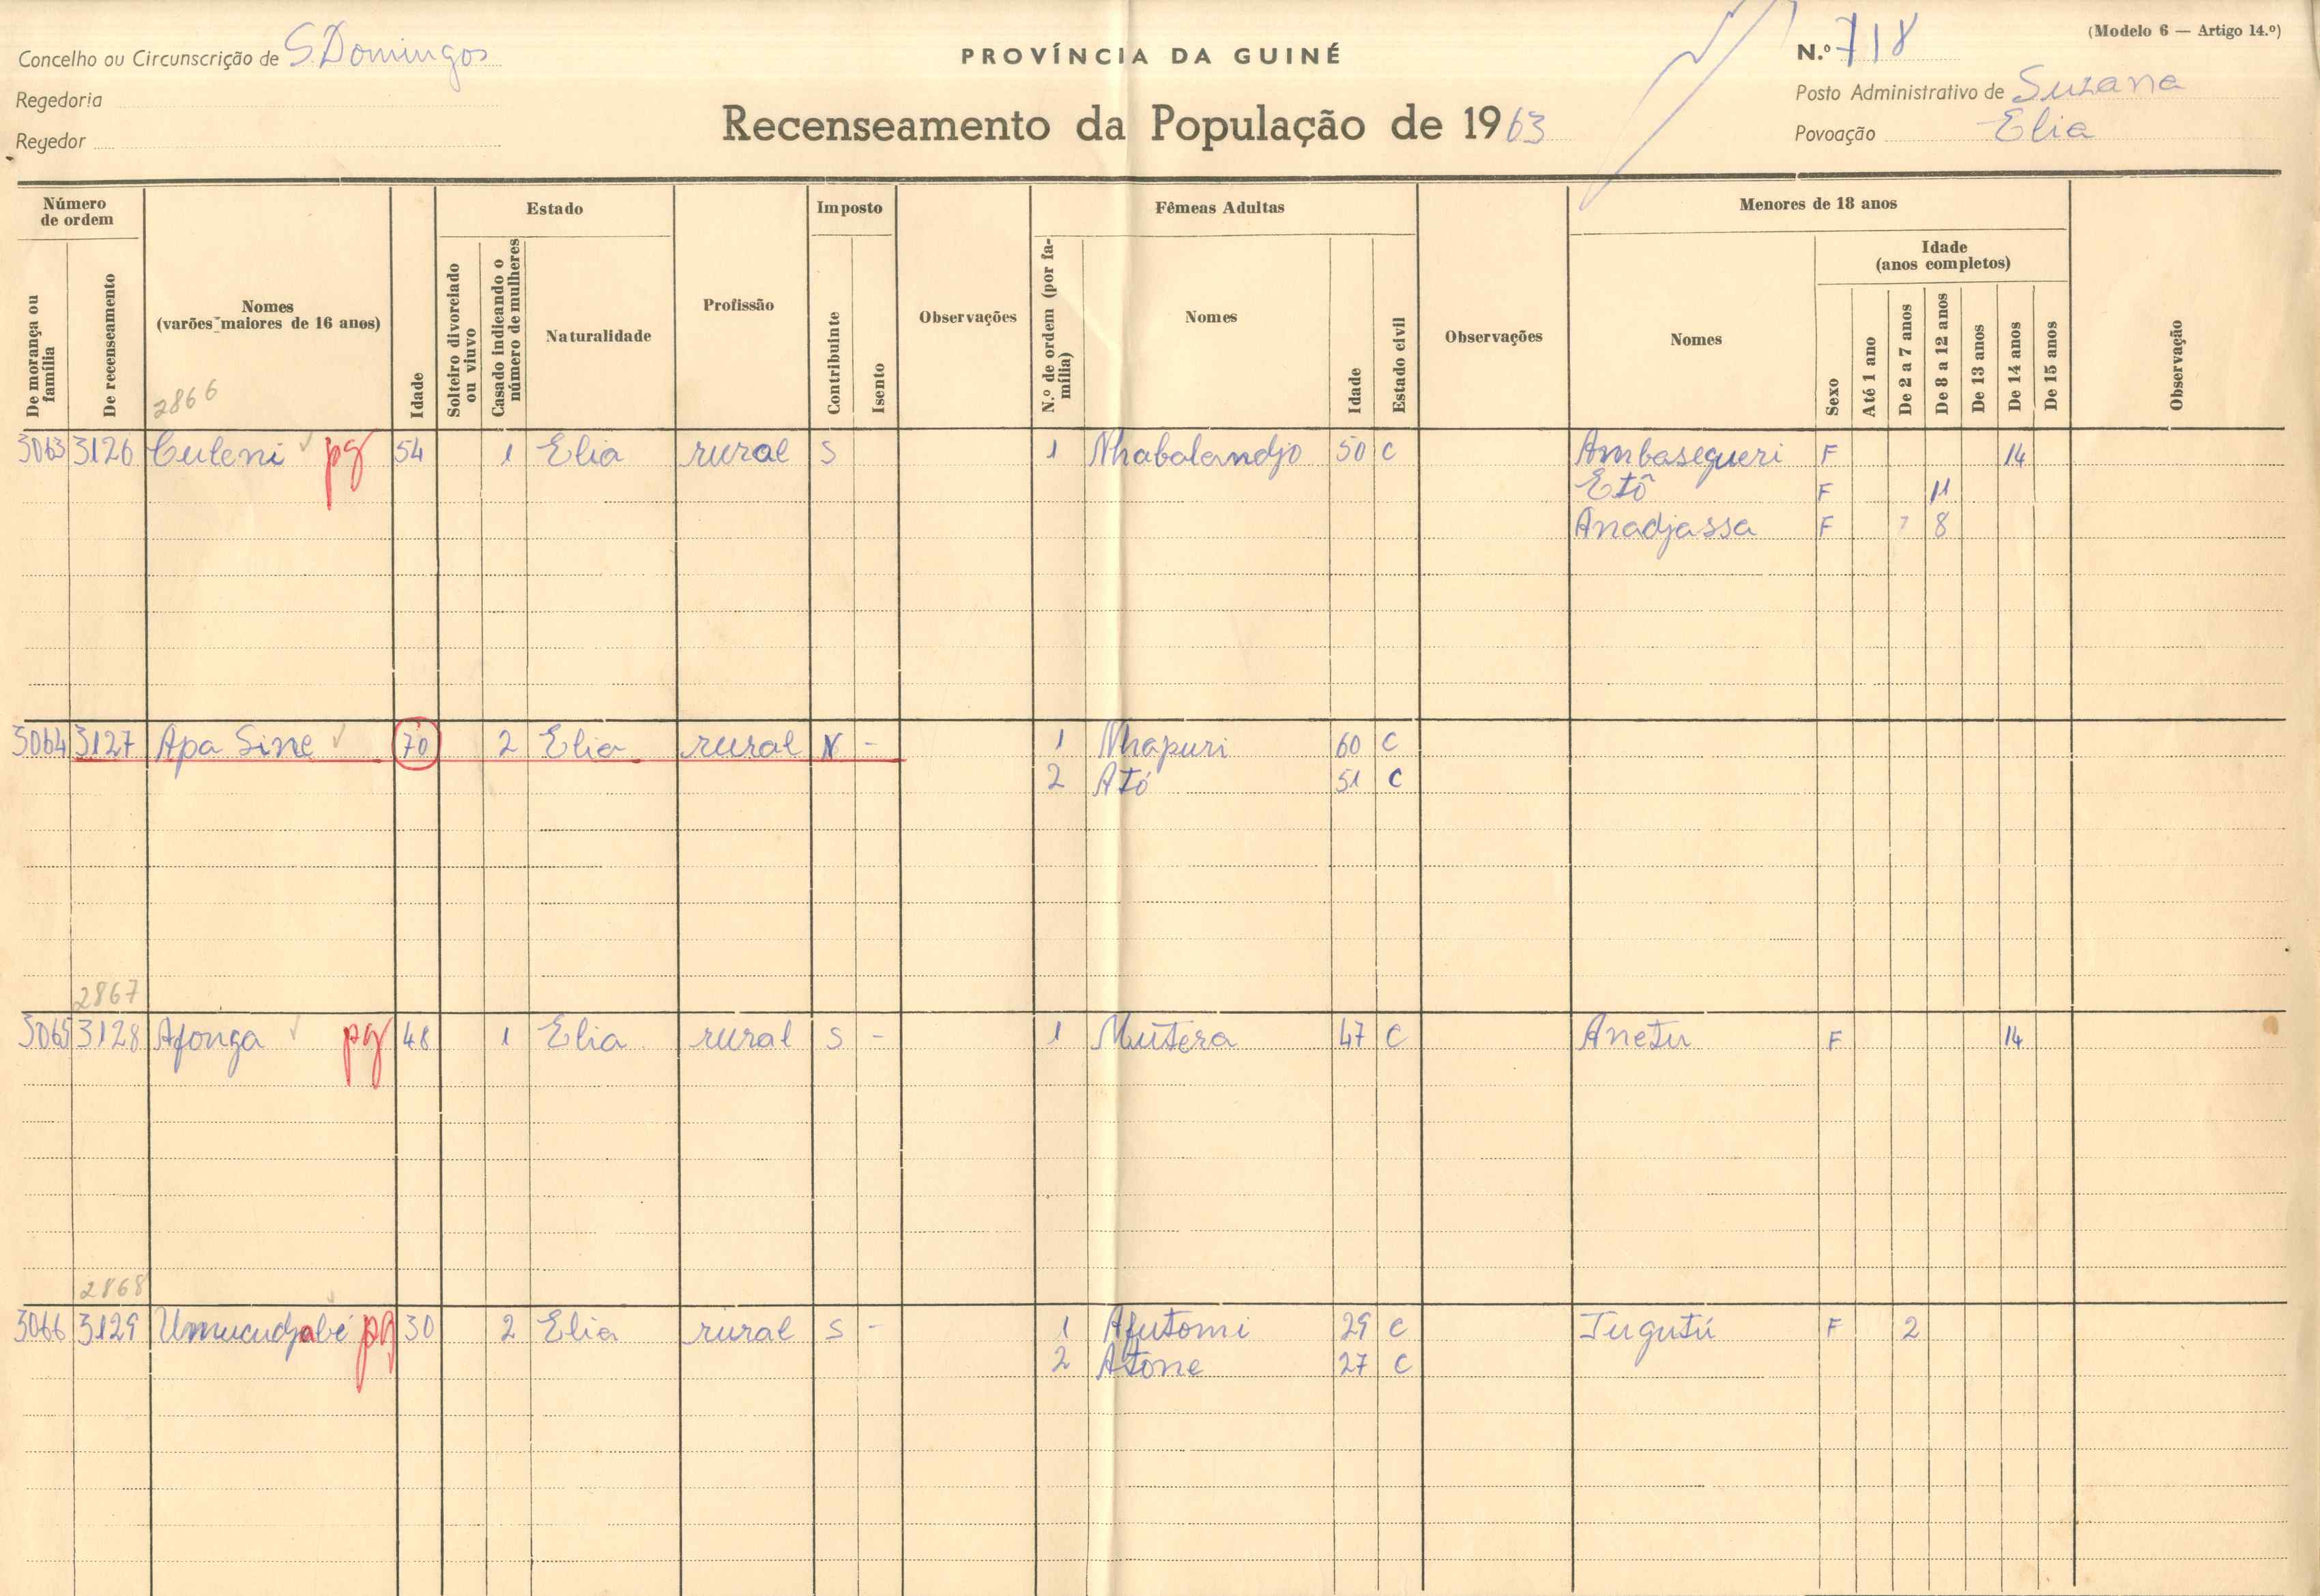 (Modelo 6 — Artigo 14.º)
Concelho ou Circunscrição de S. Domingos
PROVÍNCIA DA GUINÉ
N.º 718
Regedoria
Posto Administrativo de Suzana
Recenseamento da População de 1963
Regedor
Povoação Elia
Número de ordem
Estado
Imposto
Fêmeas Adultas
Menores de 18 anos
De morança ou família
De recenseamento
Nomes
(varões maiores de 16 anos)
Idade
Solteiro divorciado ou viuvo
Casado indicando o número de mulheres
Naturalidade
Profissão
Contribuinte
Isento
Observações
N.º de ordem (por família)
Nomes
Idade
Estado civil
Observações
Nomes
Sexo
Idade
(anos completos)
Até 1 ano
De 2 a 7 anos
De 8 a 12 anos
De 13 anos
De 14 anos
De 15 anos
Observação
2866
3063 3126 Culeni pg 54 1 Elia rural S 1 Nhabalandjo 50 C Ambasegueri F 14
Etô F 11
Anadjassa F 7 8
3064 3127 Apa Sine 70 2 Elia rural N - 1 Nhapuri 60 C
2 Ató 51 C
2867
3065 3128 Afonga pg 48 1 Elia rural S - 1 Mutera 47 C Anetu F 14
2868
3066 3129 Umucudjabé pg 30 2 Elia rural S - 1 Afutomi 29 C Jugutú F 2
2 Atone 27 C